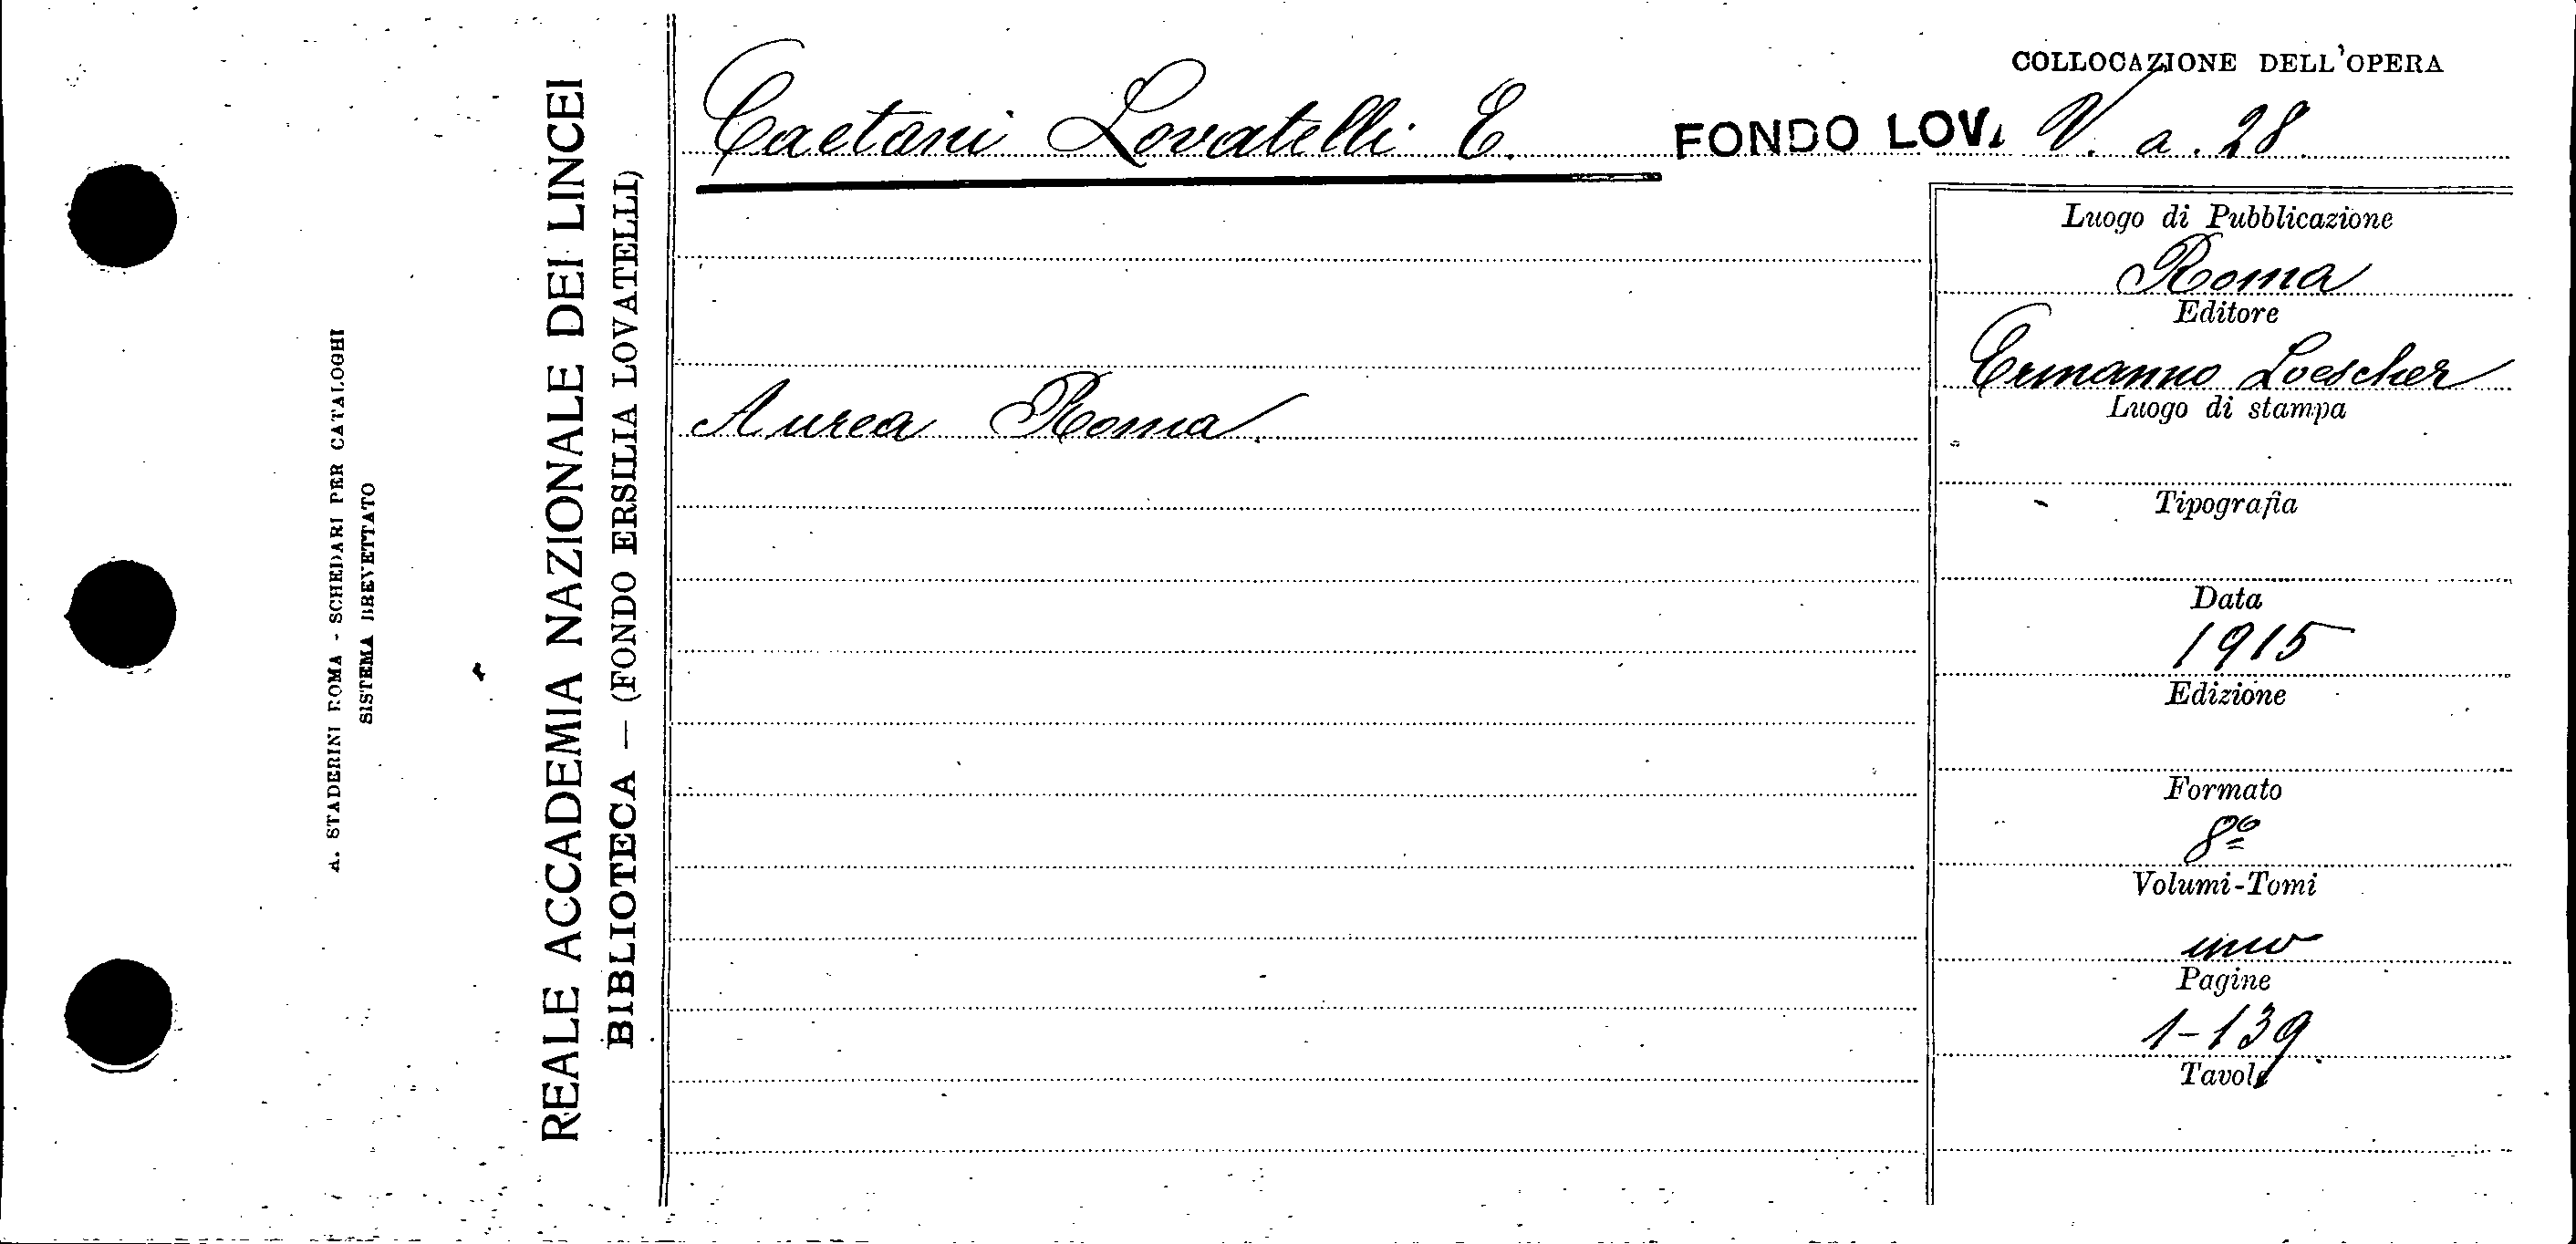 A. STADERINI ROMA - SCHEDARI PER CATALOGHI
SISTEMA BREVETTATO
REALE ACCADEMIA NAZIONALE DEI LINCEI
BIBLIOTECA — (FONDO ERSILIA LOVATELLI)
COLLOCAZIONE DELL'OPERA
Caetani Lovatelli E. FONDO LOV. V. a. 28.
Luogo di Pubblicazione
Roma
Editore
Ermanno Loescher
Luogo di stampa
Aurea Roma.
Tipografia
Data
1915
Edizione
Formato
8º
Volumi-Tomi
uno
Pagine
1-139
Tavole